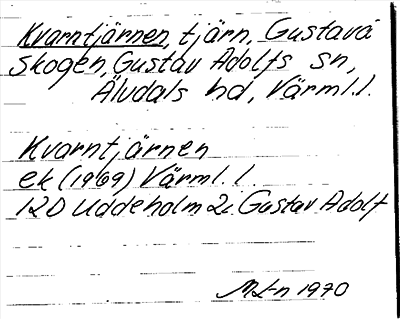 Kvarntjärnen, tjärn, Gustava
skogen, Gustav Adolfs sn,
Älvdals hd, Värml.l.
Kvarntjärnen
ek (1969) Värml. l.
12D Uddeholm 2i Gustav Adolf
1970